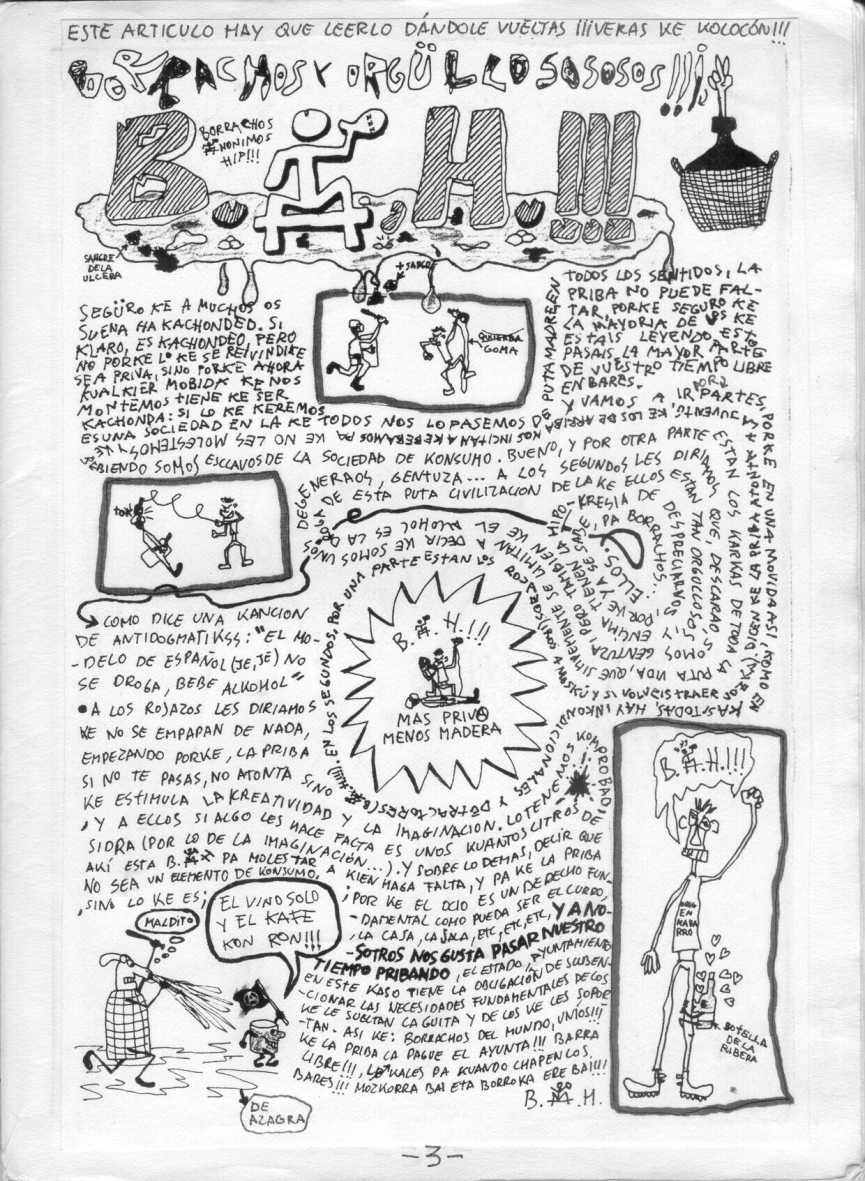 ESTE ARTICULO HAY QUE LEERLO DÁNDOLE VUELTAS ¡¡¡VERAS KE KOLOCÓN!!!
BORRACHOS Y ORGÜLLOSOSOSOS!!!
BORRACHOS
ANONIMOS
HIP!!!
B.A.H!!!
SANGRE
DE LA
ULCERA
+ SANGRE
SEGÜRO KE A MUCHOS OS
SUENA HA KACHONDEO. SI
KLARO, ES KACHONDEO, PERO
NO PORKE LO KE SE REIVINDIKE
SEA PRIVA, SINO PORKE AHORA
KUALKIER MOBIDA KE NOS
MONTEMOS TIENE KE SER
KACHONDA: SI LO KE KEREMOS
ES UNA SOCIEDAD EN LA KE TODOS NOS LO PASEMOS DE PUTAMADRE EN
GOMA
TODOS LOS SENTIDOS, LA
PRIBA NO PUEDE FAL-
TAR, PORKE SEGURO KE
LA MAYORIA DE LOS KE
ESTAIS LEYENDO ESTO
PASAIS LA MAYOR PARTE
DE VUESTRO TIEMPO LIBRE
EN BARES.
Y VAMOS A IR POR PARTES,
PORKE EN UNA MOVIDA ASI, KOMO EN
KASI TODAS, HAY INKONDICIONALES Y DETRACTORES (B.A.H!!!). EN LOS SEGUNDOS, POR UNA PARTE ESTAN LOS ROJAZOS
SIMPLEMENTE SE LIMITAN A DECIR KE EL ALCOHOL ES LA DROGA DE ESTA PUTA CIVILIZACION
BEBIENDO SOMOS ESCLAVOS DE LA SOCIEDAD DE KONSUMO. BUENO, Y POR OTRA PARTE ESTAN LOS KARKAS DE TODA LA PUTA VIDA, QUE
TAMBIEN KE SOMOS UNOS DEGENERAOS, GENTUZA... A LOS SEGUNDOS LES DIRIAMOS QUE, DESCARAO, SOMOS GENTUZA
DE LA KE ELLOS ESTAN TAN ORGULLOSOS, Y ENCIMA TIENEN LA HIPO-
KRESIA DE DESPRECIARNOS, PERO
PORKE YA SE SABE, PA BORRACHOS... ELLOS.
TOMA
B.A.H.!!!
MAS PRIVA
MENOS MADERA
COMO DICE UNA KANCION
DE ANTIDOGMATIKSS: "EL MO-
-DELO DE ESPAÑOL (JE, JE) NO
SE DROGA, BEBE ALKOHOL"
• A LOS ROJAZOS LES DIRIAMOS
KE NO SE EMPAPAN DE NADA,
EMPEZANDO PORKE, LA PRIBA
SI NO TE PASAS, NO ATONTA SINO
KE ESTIMULA LA KREATIVIDAD Y LA IMAGINACION. LO TENEMOS KOMPROBADI
, Y A ELLOS SI ALGO LES HACE FALTA ES UNOS KUANTOS LITROS DE
SIDRA (POR LO DE LA IMAGINACIÓN...). Y SOBRE LO DEMAS, DECIR QUE
AKÍ ESTA B.A.H PA MOLESTAR A KIEN HAGA FALTA, Y PA KE LA PRIBA
NO SEA UN ELEMENTO DE KONSUMO,
, SINO LO KE ES;
; POR KE EL OCIO ES UN DERECHO FUN-
DAMENTAL COMO PUEDA SER EL CURRO,
, LA CASA, LA SALA, ETC, ETC, ETC, Y A NO-
-SOTROS NOS GUSTA PASAR NUESTRO
TIEMPO PRIBANDO, EL ESTADO, AYUNTAMIENTO
EN ESTE KASO TIENE LA OBLIGACIÓN DE SUBBEN-
-CIONAR LAS NECESIDADES FUNDAMENTALES DE LOS
KE LE SUELTAN LA GUITA Y DE LOS KE LES SOPOR-
-TAN. ASI KE: BORRACHOS DEL MUNDO, UNIOS!!!
KE LA PRIBA LA PAGUE EL AYUNTA!!! BARRA
LIBRE!!!, LOKALES PA KUANDO CHAPEN LOS
BARES!!! MOZKORRA BAI ETA BORROKA ERE BAI!!!
B.A.H.
MALDITO
EL VINO SOLO
Y EL KAFE
KON RON!!!
DE
AZAGRA
B.A.H.!!!
ORIG
EN
NABA
RRO
BOTELLA
DE LA
RIBERA
-3-